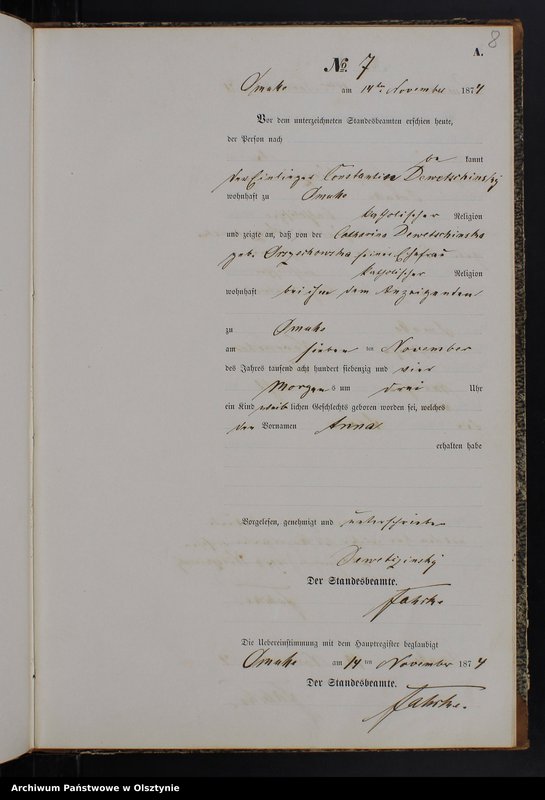 8
A.
No. 7
am 14ten November 1874
Vor dem unterzeichneten Standesbeamten erschien heute,
der Person nach
be kannt
der Einlieger Constantin Dewetschinsky
wohnhaft zu
katholischer Religion
und zeigte an, daß von der Catharina Dewetschinska
geb. seiner Ehefrau
katholischer Religion
wohnhaft bei ihm dem Anzeigenden
zu
am sieben ten November
des Jahres tausend acht hundert siebenzig und vier
Morgen s um drei Uhr
ein Kind weib lichen Geschlechts geboren worden sei, welches
den Vornamen Anna
erhalten habe
Vorgelesen, genehmigt und unterschrieben
Der Standesbeamte.
Die Uebereinstimmung mit dem Hauptregister beglaubigt
am 14 ten November 1874
Der Standesbeamte.
Archiwum Państwowe w Olsztynie